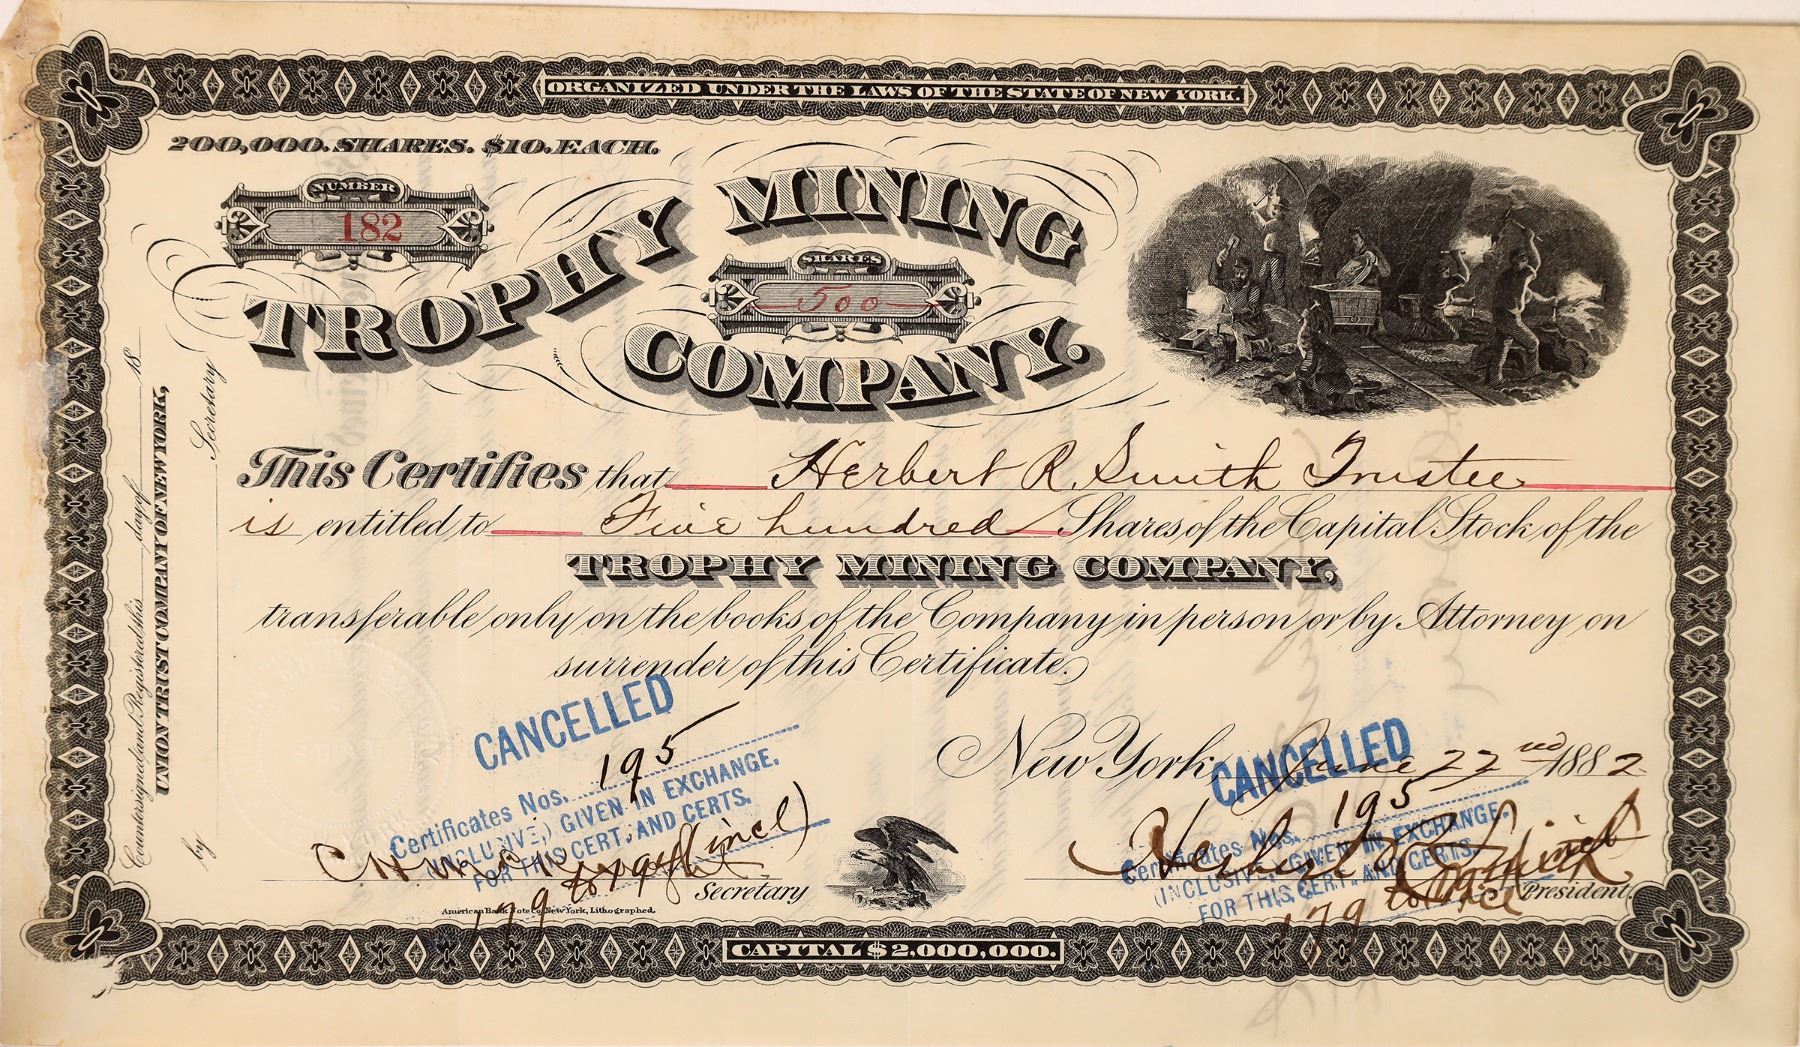 ORGANIZED UNDER THE LAWS OF THE STATE OF NEW YORK.
200,000. SHARES. $10. EACH.
NUMBER
182
TROPHY MINING
SHARES
500
COMPANY.
This Certifies that Herbert R. Smith Trustee
is entitled to Five hundred Shares of the Capital Stock of the
TROPHY MINING COMPANY,
transferable only on the books of the Company in person or by Attorney on
surrender of this Certificate.
New York June 22nd 1882
CANCELLED
195
Certificates Nos.
(INCLUSIVE,) GIVEN IN EXCHANGE.
FOR THIS CERT. AND CERTS.
179 to 194 (incl)
Secretary
American Bank Note Co. New York, Lithographed.
CANCELLED
195
Certificates Nos.
(INCLUSIVE,) GIVEN IN EXCHANGE.
FOR THIS CERT. AND CERTS.
179 to
Herbert R. Smith
President.
CAPITAL $2,000,000.
Countersigned and Registered this day of 18
UNION TRUST COMPANY OF NEW YORK,
by Secretary